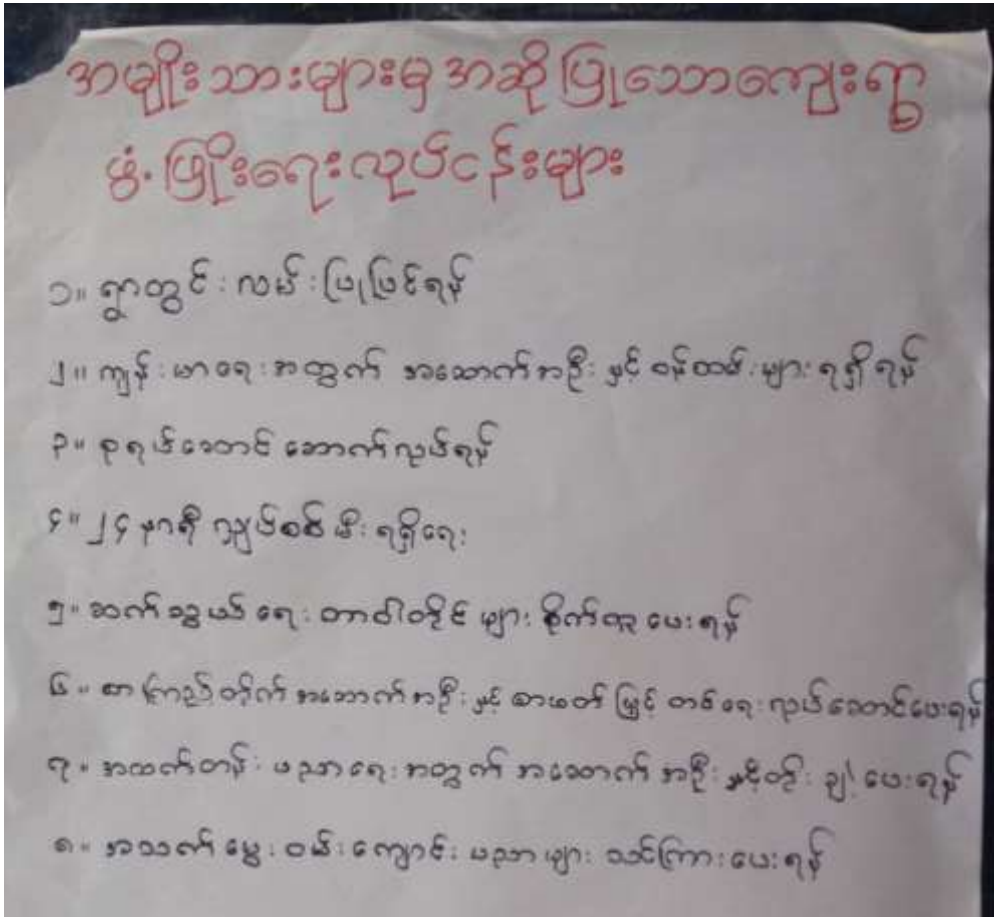 အမျိုးသားများမှ အဆိုပြုသောကျေးရွာ
ဖွံ့ဖြိုးရေးလုပ်ငန်းများ
၁။ ရွာတွင်းလမ်းပြုပြင်ရန်
၂။ ကျန်းမာရေးအတွက် အဆောက်အဦးနှင့် ဝန်ထမ်းများရရှိရန်
၃။ စုရပ်ဆောင် ဆောက်လုပ်ရန်
၄။ ၂၄ နာရီ လျှပ်စစ်မီးရရှိရေး
၅။ ဆက်သွယ်ရေးတာဝါတိုင်များ စိုက်ထူပေးရန်
၆။ စာကြည့်တိုက် အဆောက်အဦးနှင့် စာဖတ်မြှင့်တင်ရေးလုပ်ဆောင်ပေးရန်
၇။ အထက်တန်းပညာရေးအတွက် အဆောက်အဦးနှင့်တိုးချဲ့ပေးရန်
၈။ အသက်မွေးဝမ်းကျောင်းပညာများ သင်ကြားပေးရန်